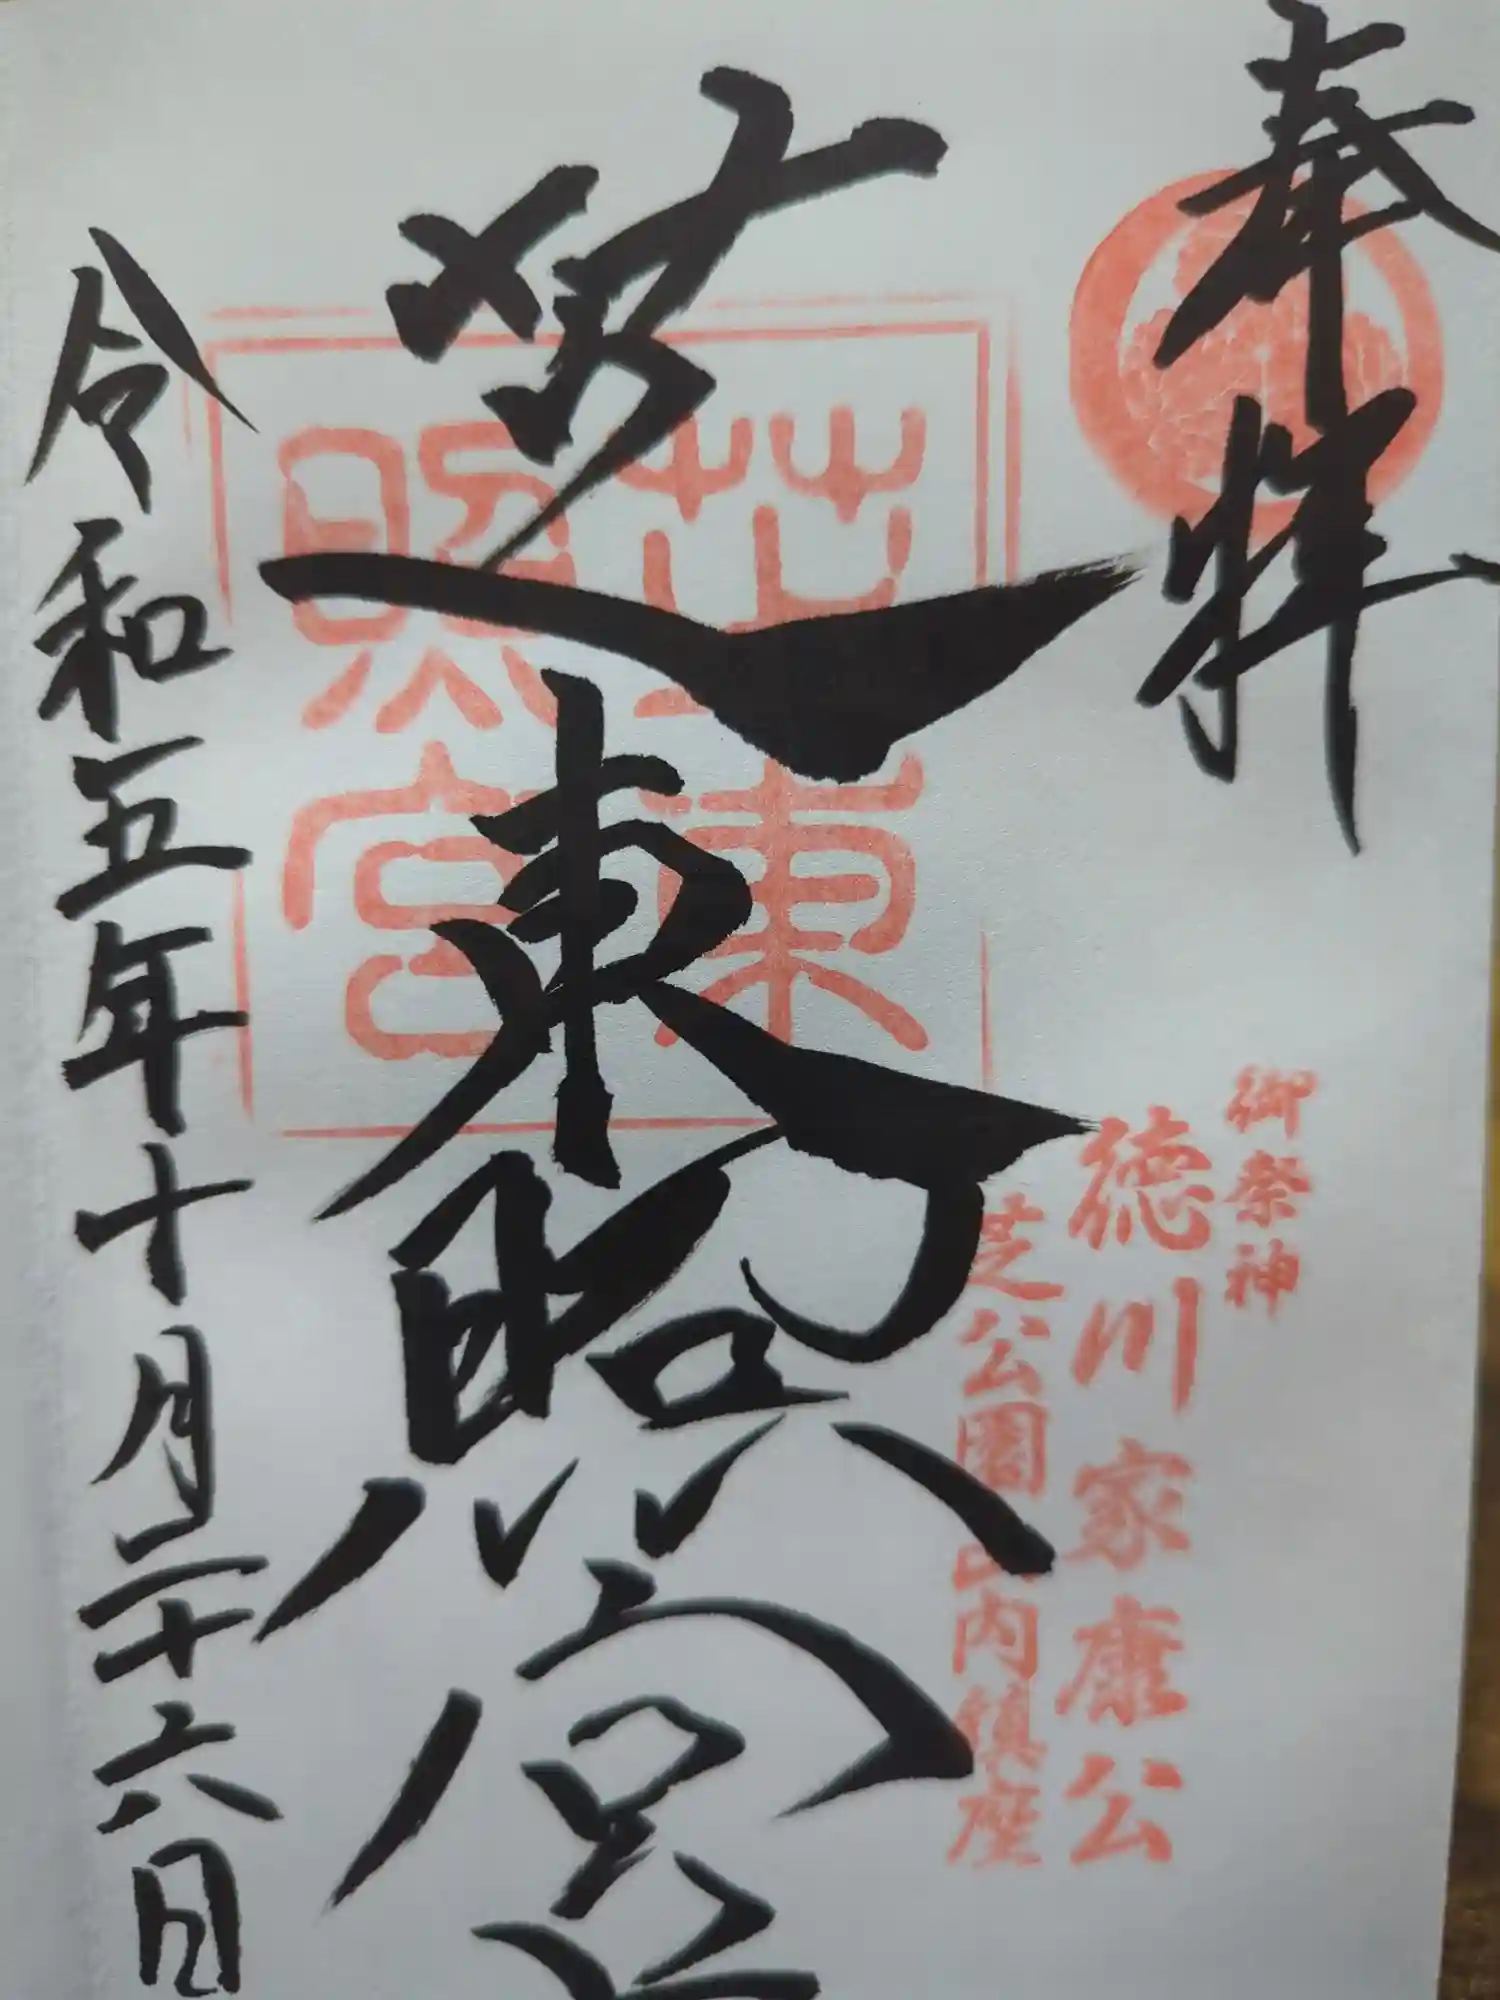 奉拝
御祭神
徳川家康公
芝公園山内鎮座
芝東照宮
芝東
照宮
令和五年十月二十六日